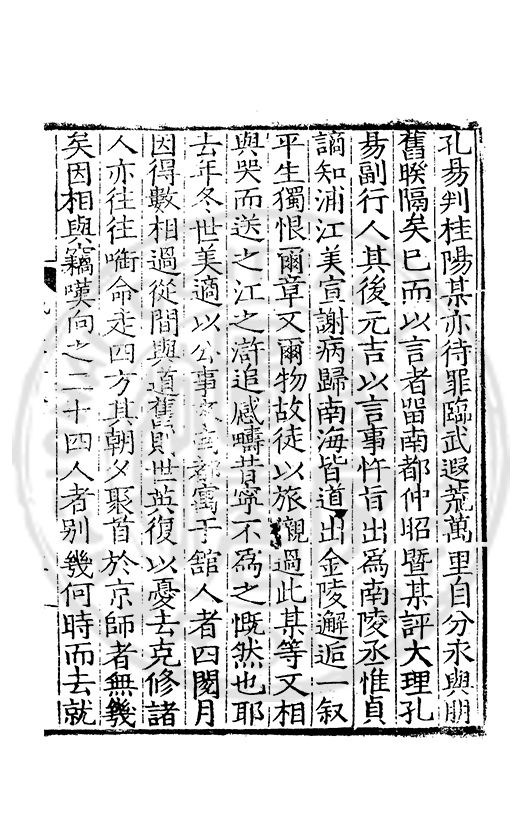 孔昜判桂陽某亦待罪臨武遐荒萬里自分永與朋
舊睽隔矣已而以言者留南都仲昭暨某評大理孔
昜副行人其後元吉以言事忤旨出為南陵丞惟貞
謫知浦江美宣謝病歸南海皆道出金陵邂逅一叙
平生獨恨爾章文爾物故徒以旅櫬過此某等又相
與哭而送之江之滸追感疇昔寧不為之慨然也耶
去年冬世美適以公事來南都寓于舘人者四閱月
因得數相過從間與道舊則世英復以憂去克修諸
人亦往往啣命走四方其朝夕聚首於京師者無幾
矣因相與竊嘆向之二十四人者別幾何時而去就